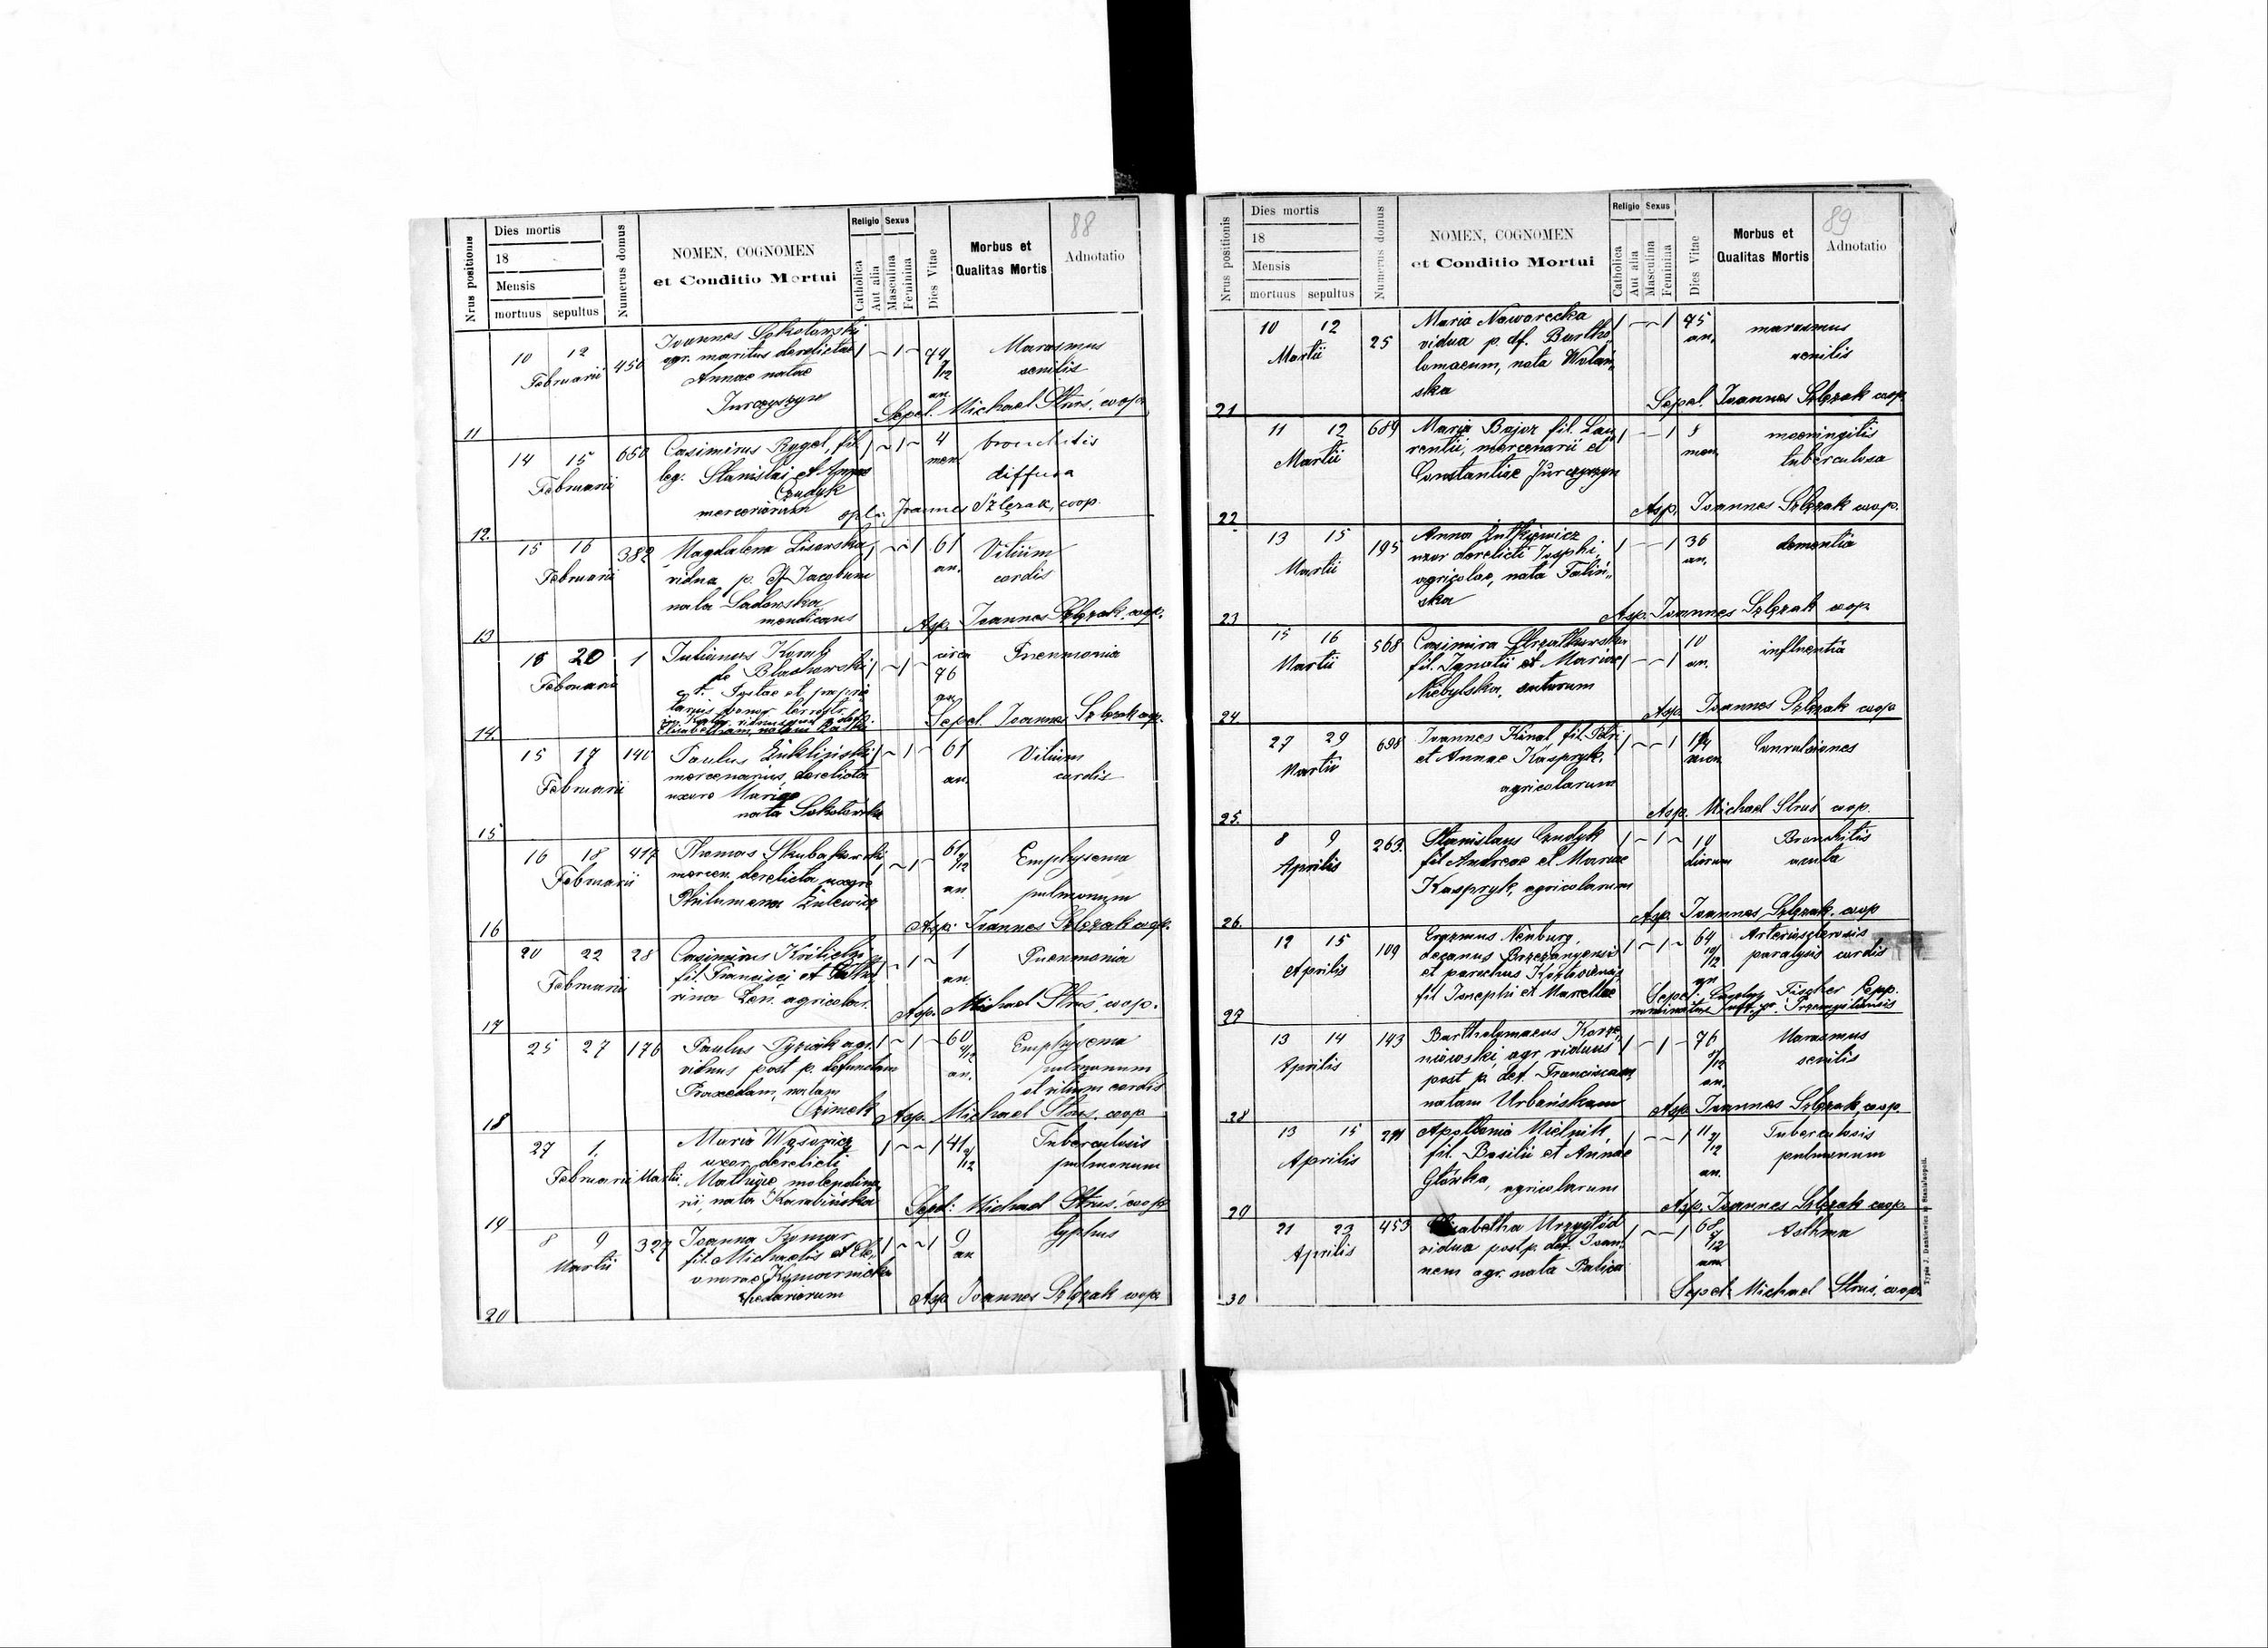 88
Nrus positionis
Dies mortis
18
Mensis
mortuus sepultus
Numerus domus
NOMEN, COGNOMEN
et Conditio Mortui
Religio Sexus
Catholica
Aut alia
Masculina
Feminina
Dies Vitae
Morbus et
Qualitas Mortis
Adnotatio
10 12
Februarii
450
Joannes Sokołowski
agr. maritus derelictae
Annae natae
Jurczyszyn
1 ~ 1 ~
an.
Marasmus
senilis
Sepel. Michael Struś, coop.
11
14 15
Februarii
650
Casimirus Rygel, fil.
leg. Stanislai et Annae
Czudyk
1 ~ 1 ~
4
men.
bronchitis
diffusa
Joannes Szlęzak, coop.
12.
15 16
Februarii
382
Magdalena Lisowska
vidua p. df Jacobum
nata Sadowska
mendicans
1 ~ ~ 1
61
an.
Vitium
cordis
Asp. Joannes Szlęzak, coop.
13
20
Februarii
1
Julianus
de Błachowski
1 ~ 1 ~
circa
76
an.
Pneumonia
Sepel. Joannes Szlęzak coop.
14.
15 17
Februarii
140
Paulus
mercenarius, derelicta
uxore Maria
nata Sokołowska
1 ~ 1 ~
61
an.
Vitium
cordis
15
16 18
Februarii
417
Thomas
mercen. derelicta uxore
Philumena
1 ~ 1 ~
61
an.
Emphysema
pulmonum
Asp. Joannes Szlęzak coop.
16
20 22
Februarii
28
Casimirus
fil. Francisci et
agricolar.
1 ~ 1 ~
1
an.
Pneumonia
Asp. Michael Struś, coop.
17
25 27
Februarii
176
Paulus Pyziak agr.
viduus post p. defunctam
Praxedam, natam
Ozimek
1 ~ 1 ~
60
an.
Emphysema
pulmonum
et vitium cordis
Asp. Michael Struś, coop
18
27 1.
Februarii Martii.
Maria Wąsowicz
uxor derelicti
nata Karabińska
1 ~ ~ 1
41
/12
Tuberculosis
pulmonum
Sepel: Michael Struś, coop
19
8 9
Martii
327
Joanna Komar
fil. Michaelis et
1 ~ ~ 1
9
an
typhus
Asp. Joannes Szlęzak coop
20
89
Nrus positionis
Dies mortis
18
Mensis
mortuus sepultus
Numerus domus
NOMEN, COGNOMEN
et Conditio Mortui
Religio Sexus
Catholica
Aut alia
Masculina
Feminina
Dies Vitae
Morbus et
Qualitas Mortis
Adnotatio
10 12
Martii
25
Maria Nowarecka
vidua p. df. Bartho,,
lomaeum, nata Wolań,,
ska
1 ~ ~ 1
an.
marasmus
senilis
Sepel. Joannes Szlęzak coop.
21
11 12
Martii
689
Maria Bajor fil. Lau,,
rentii, mercenarii et
Constantiae Jurczyszyn
1 ~ ~ 1
8
men.
meningitis
tuberculosa
Asp. Joannes Szlęzak coop.
22
13 15
Martii
195
Anna
uxor derelicti Josephi,
agricolae, nata Faliń,,
ska
1 ~ ~ 1
36
an.
dementia
Asp. Joannes Szlęzak coop.
23
15 16
Martii
568
Casimira Strzałkowska
fil. Ignatii et Mariae
Niebylska, sutorum
1 ~ ~ 1
10
an.
influentia
Asp. Joannes Szlęzak coop
24
27 29
Martii
698
Joannes Kinal fil. Petri
et Annae Kaspryk,
agricolarum
1 ~ ~ 1
men.
Convulsiones
Asp. Michael Struś coop.
25.
8 9
Aprilis
263.
Stanislaus Czudyk
fil Andreae et Mariae
Kaspryk, agricolarum
1 ~ 1 ~
dierum
Bronchitis
acuta
Asp. Joannes Szlęzak, coop
26.
12 15
Aprilis
109
Erazmus Neuburg,
decanus Brzezanyensis
et parochus
fil Josephi et Marcellae
1 ~ 1 ~
64
/12
Arteriosclerosis
paralysis cordis
Sepel. Fischer
27
13 14
Aprilis
143
Bartholomaeus Korze,,
niowski agr. viduus
post p. def. Franciscam
natam Urbańskam
1 ~ 1 ~
76
/12
an.
Marasmus
senilis
Asp. Joannes Szlęzak, coop
28
13 15
Aprilis
Apollonia Mielnik,
fil. Basilii et Annae
Główka, agricolarum
1 ~ ~ 1
11
/12
an.
Tuberculosis
pulmonum
Asp. Joannes Szlęzak coop.
29
21 23
Aprilis
453
Elisabetha
vidua post p. def. Joan,,
nem agr. nata Palica
1 ~ ~ 1
68
/12
ann.
Asthma
Sepel: Michael Struś, coop.
30
Typis J. Dankiewicz in Stanislaopoli.